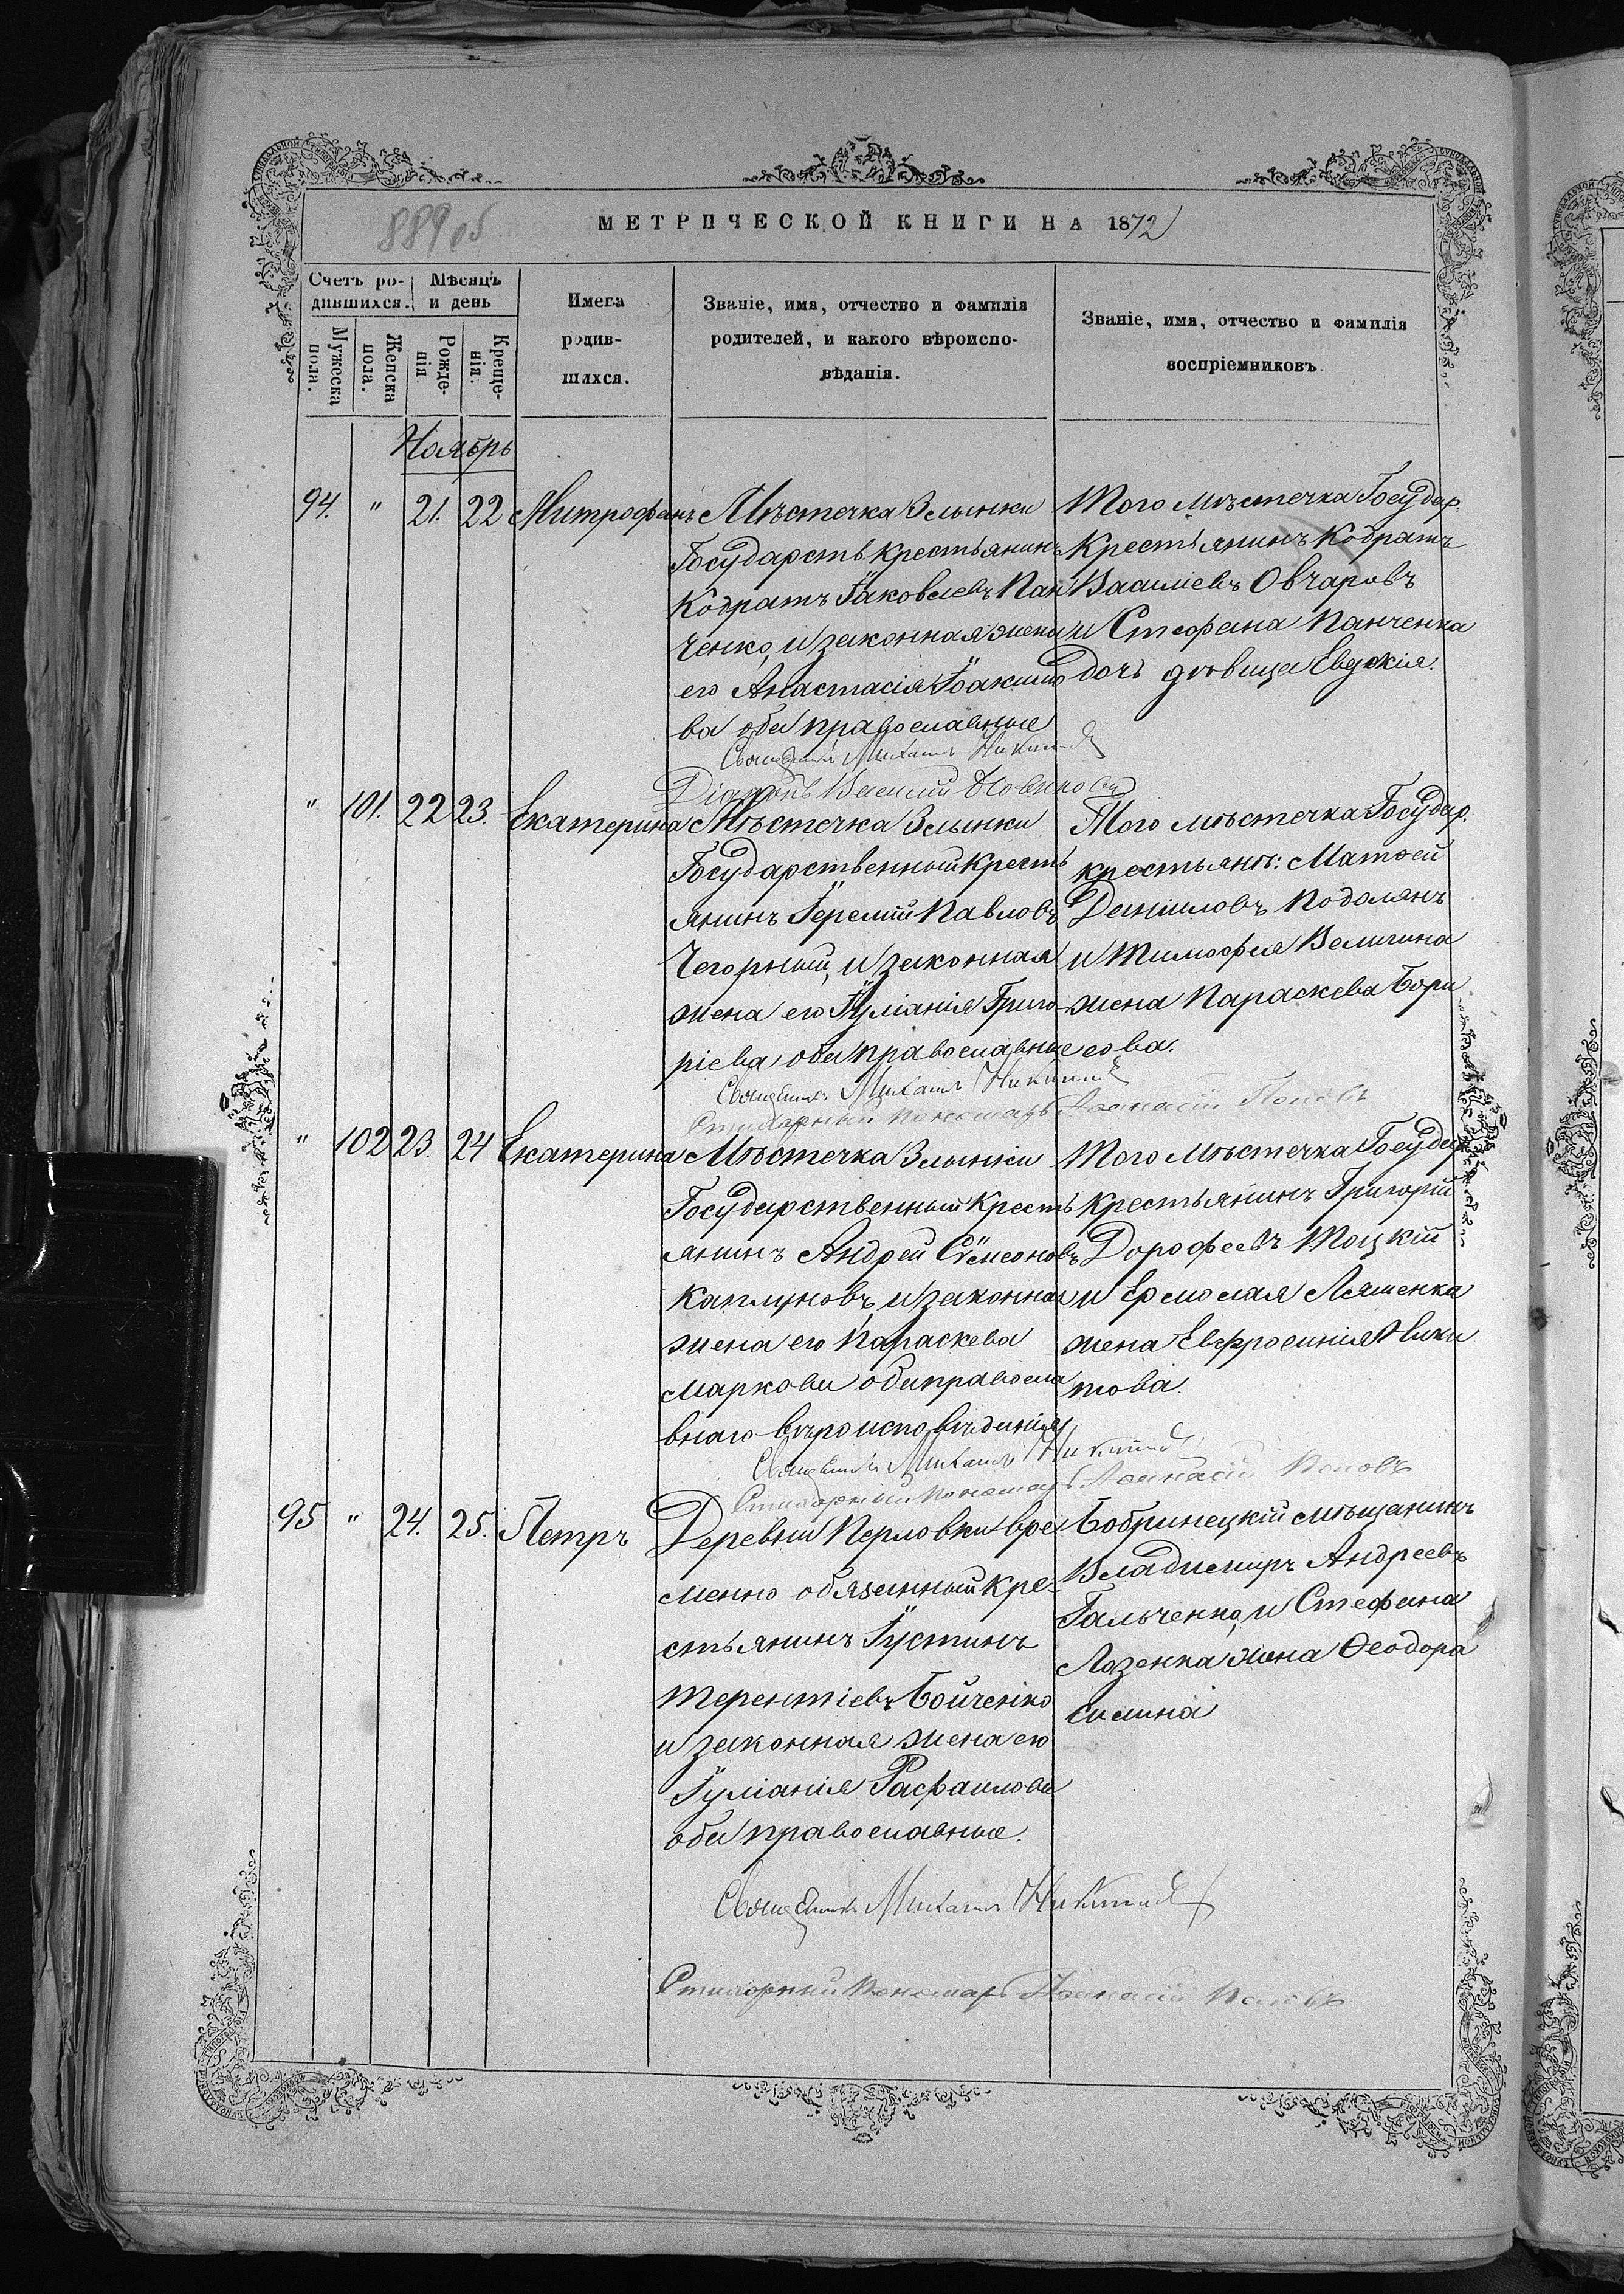 889 об
МЕТРИЧЕСКОЙ КНИГИ НА 1872
Счетъ ро-
дившихся.
Мѣсяцъ
и день
Мужеска
пола.
Женска
пола.
Рожде-
нія
Креще-
нія.
Имена
родив-
шихся.
Званіе, имя, отчество и фамилія
родителей, и какого вѣроиспо-
вѣданія.
Званіе, имя, отчество и фамилія
воспріемниковъ
Ноябрь
94. " 21. 22 Митрофанъ
Мѣстечка Злынки
Государств. крестьянинъ
Кодратъ Іаковлевъ Пан
ченко, и законная жена
его Анастасія Іоакимо
ва оба православные
Того мѣстечка Государ.
крестьянинъ Кодратъ
Василіевъ Овчаровъ
и Стефана Панченка
дочь дѣвица Евдокія.
Священникъ Михаилъ
Діаконъ Василій Новиковъ
" 101. 22 23. Екатерина
Мѣстечка Злынки
Государственный кресть
янинъ Іеремій Павловъ
Чегорный, и законная
жена его Іуліанія Григо-
ріева, оба православные
Того мѣстечка Государ.
крестьяне: Матѳей
Даніиловъ Подолянъ
и Тимофея Величина
жена Параскева Бори
сова.
Священникъ Михаилъ
Стихарный пономарь Аѳанасій Поповъ
" 102 23. 24 Екатерина
Мѣстечка Злынки
Государственный кресть
янинъ Андрей Сѵмеоновъ
Каплуновъ, и законная
жена его Параскева
Маркова оба правосла
внаго вѣроисповѣданія
Того мѣстечка Государ
крестьянинъ Григорій
Дорофеевъ Тоцкій
и Ермолая Ляшенка
жена Евфросинія Ники
това.
Священникъ Михаилъ
Стихарный пономарь Аѳанасій Поповъ
95 " 24. 25. Петръ
Деревни Перловки вре
менно обязанный кре-
стьянинъ Іустинъ
Терентіевъ Бойченко
и законная жена его
Іуліанія Расфаилова
оба православные.
Бобринецкій мѣщанинъ
Владимиръ Андреевъ
Гальченко, и Стефана
Лозенка жена Ѳеодора
Силина
Священникъ Михаилъ
Стихарный пономарь Аѳанасій Поповъ